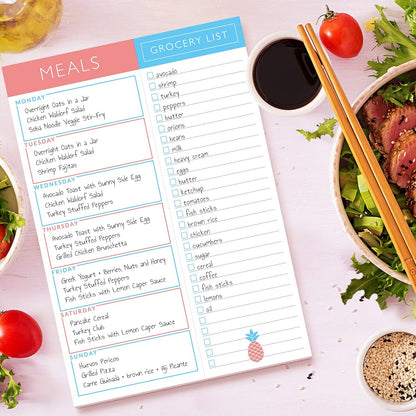 MEALS
MONDAY
Overnight Oats in a Jar
Chicken Waldorf Salad
Soba Noodle Veggie Stir-fry
TUESDAY
Overnight Oats in a Jar
Chicken Waldorf Salad
Shrimp Fajitas
WEDNESDAY
Avocado Toast with Sunny Side Egg
Chicken Waldorf Salad
Turkey Stuffed Peppers
THURSDAY
Avocado Toast with Sunny Side Egg
Turkey Stuffed Peppers
Grilled Chicken Brunchetta
FRIDAY
Greek Yogurt + Berries, Nuts and Honey
Turkey Stuffed Peppers
Fish Sticks with Lemon Caper Sauce
SATURDAY
Pancake Cereal
Turkey Club
Fish Sticks with Lemon Caper Sauce
SUNDAY
Huevos Pericos
Grilled Pizza
Carne Guisada + brown rice + Aji Picante
GROCERY LIST
avocado
shrimp
turkey
peppers
butter
onions
beans
milk
heavy cream
eggs
butter
ketchup
tomatoes
fish sticks
brown rice
chicken
cucumbers
sugar
cereal
coffee
fish sticks
lemons
oil